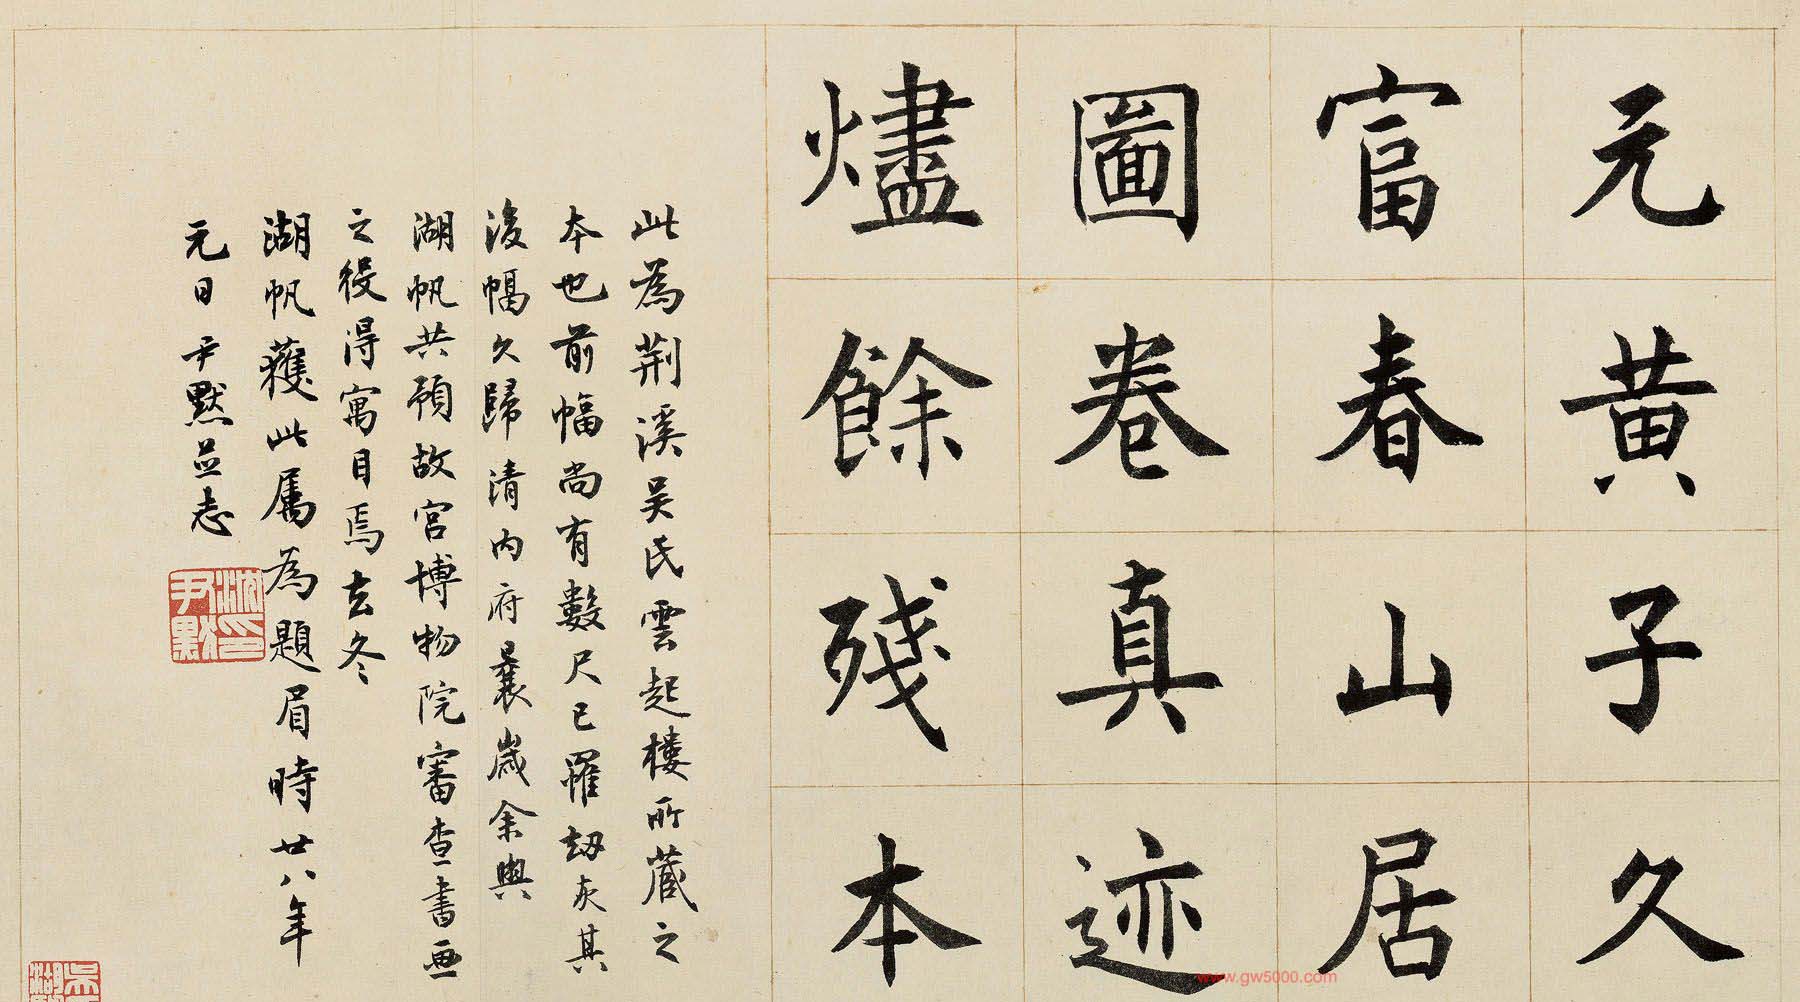 元黄子久
富春山居
圖卷真迹
燼餘殘本
此為荆溪吴民雲起樓所藏之
本也前幅尚有數尺已罹劫灰其
後幅久歸清内府曩歲余與
湖帆共預故宫博物院審查書画
之役得寓目焉去冬
湖帆獲此屬為題眉時廿八年
元日尹默並志
沈尹默印
www.gw5000.com